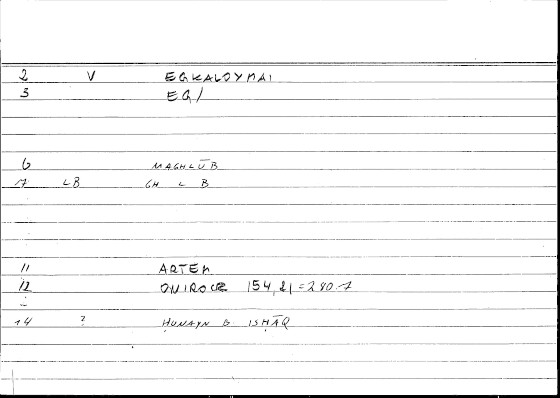 2 V EGKALOYMAI
3 EG/
6 MAGHLŪB
7 LB GH L B
11 ARTEM
12 ONIROCR 154,21=280.7
14 ? ḤUNAYN B ISḤĀQ